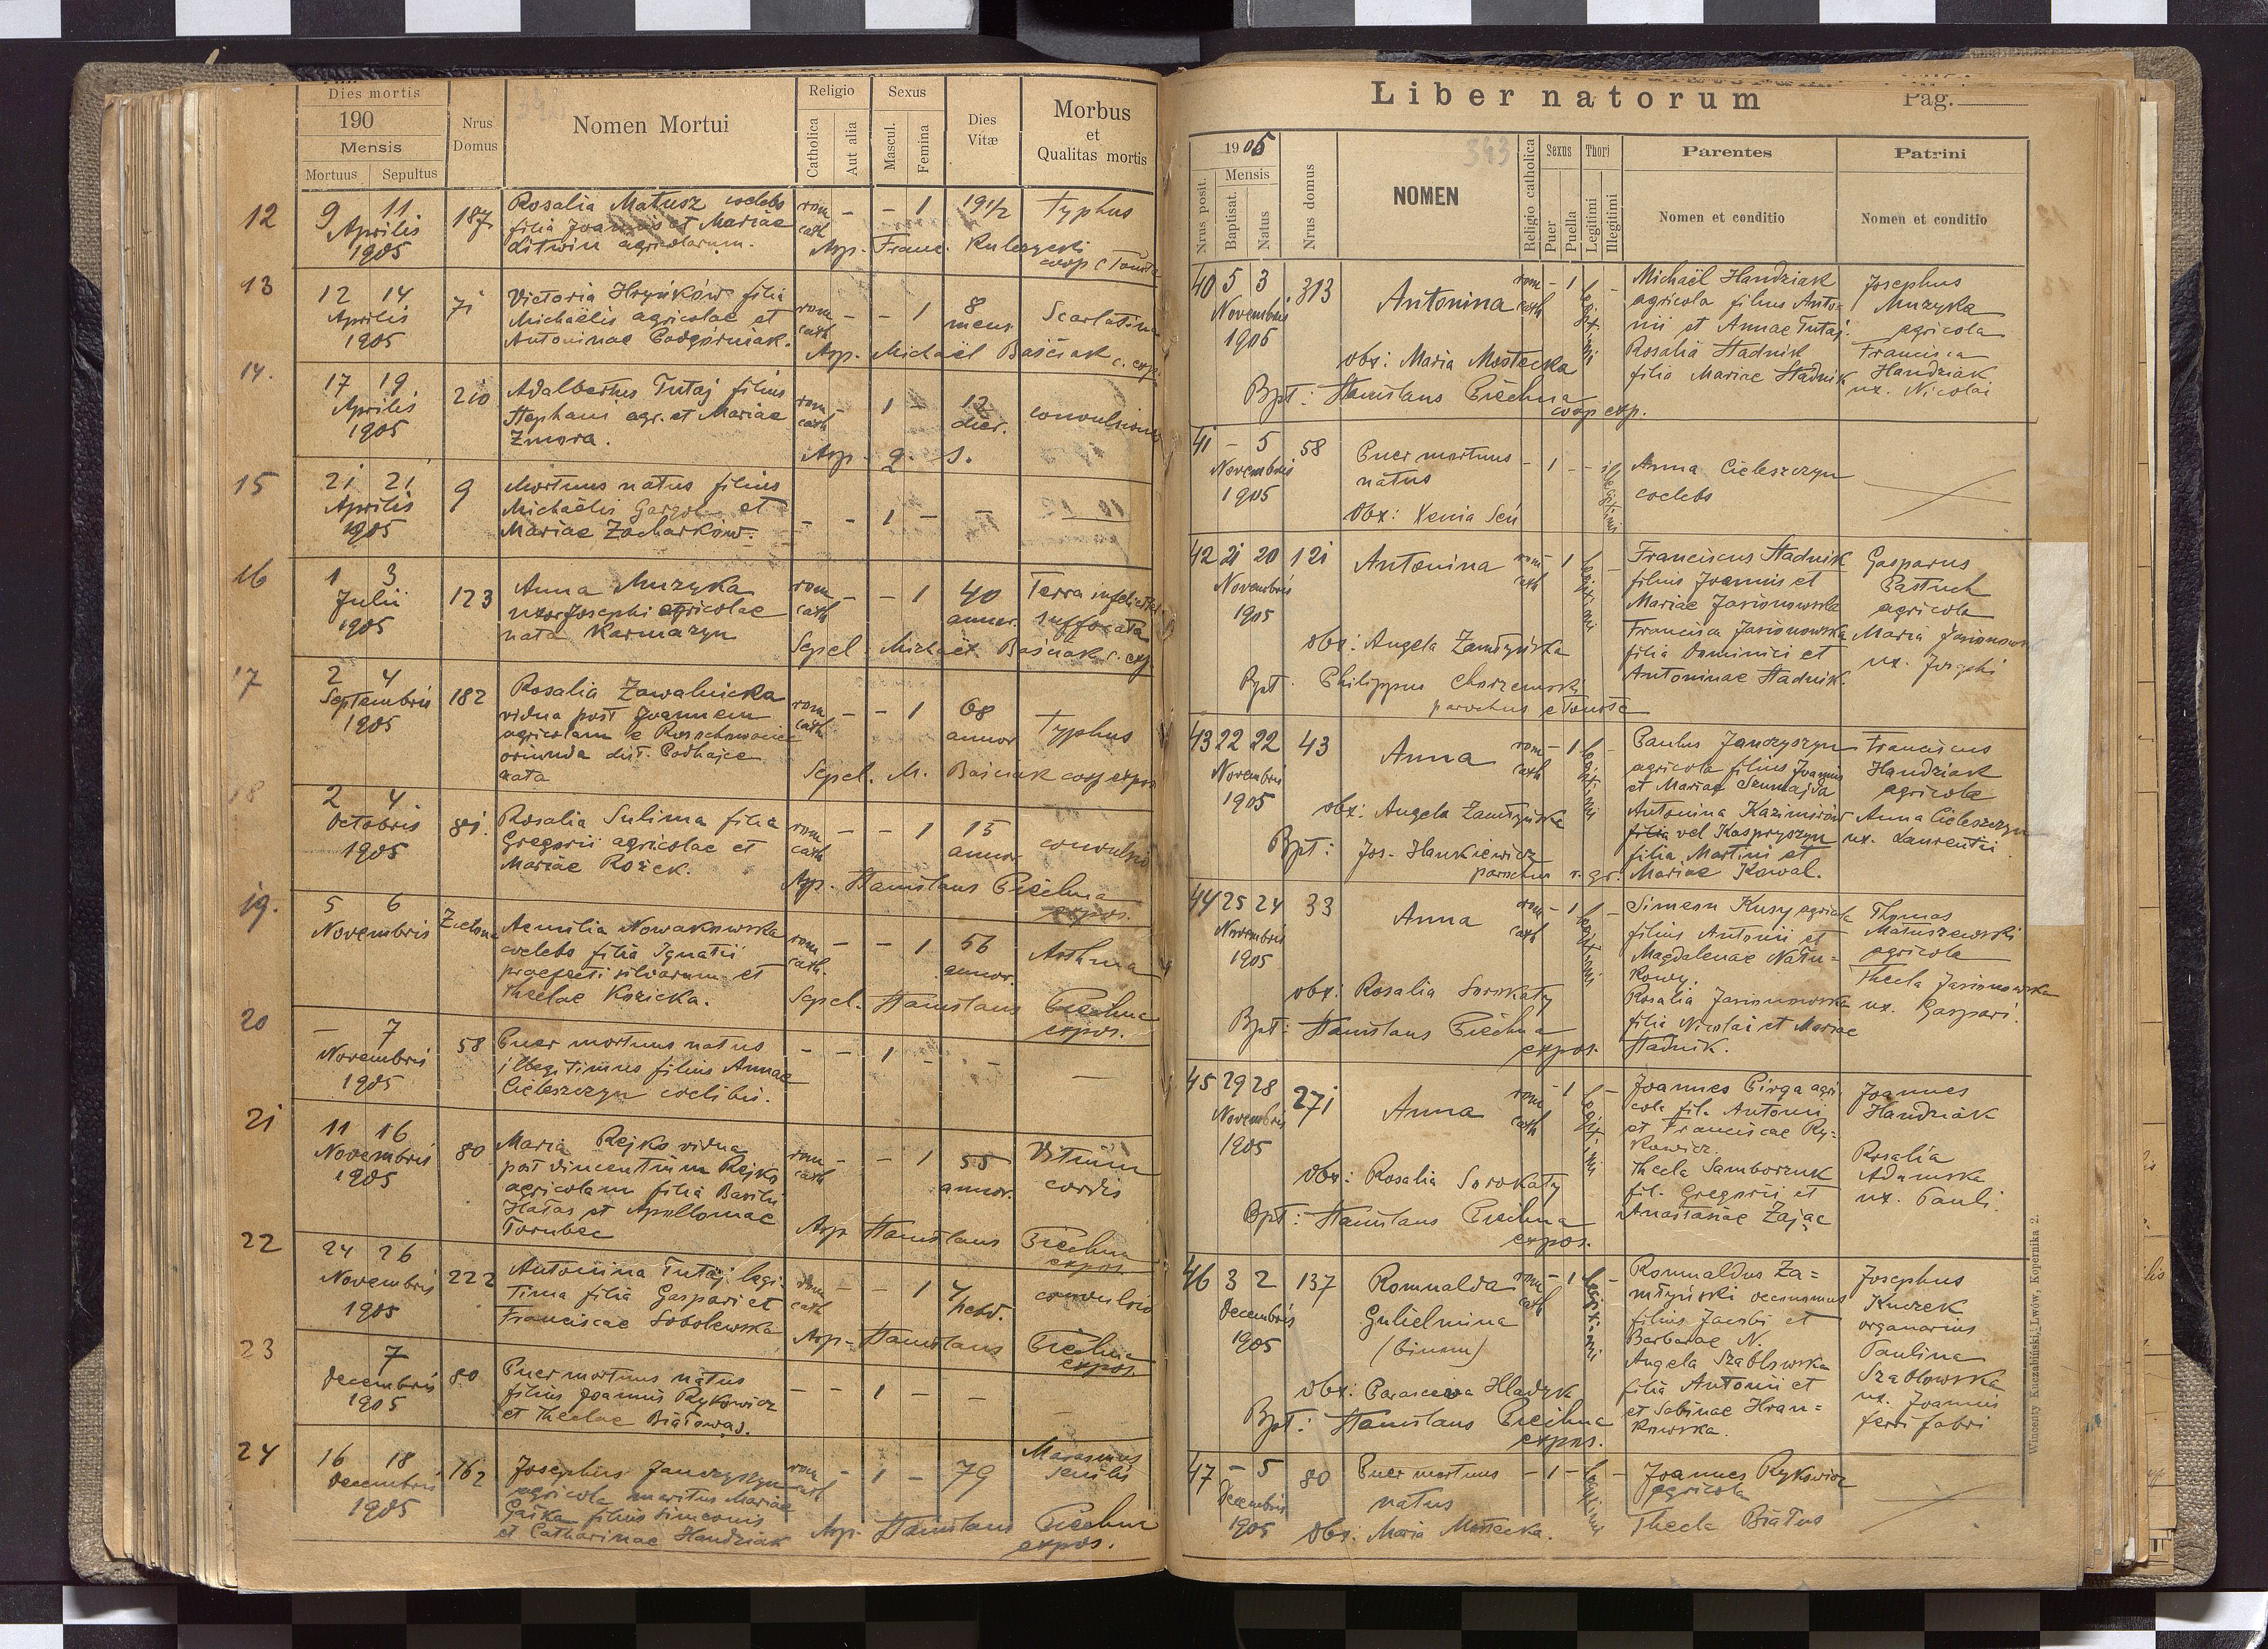 Dies mortis
190
Mensis
Mortuus Sepultus
Nrus Domus
Nomen Mortui
Religio
Catholica
Aut alia
Sexus
Mascul.
Femina
Dies Vitæ
Morbus
et
Qualitas mortis
12
9 11
Aprilis
1905
187
Rosalia Matusz coelebs
filia Joannis et Mariae
Litwin agricolarum.
rom cath - - 1 19 1/2 Typhus
Asp. Franc. Kulczycki
coop
13
12 14
Aprilis
1905
71
Victoria Hryńków filia
Michaëlis agricolae et
Antoninae Podgórniak.
rom cath - - 1 8 mens. Scarlatina
Asp. Michaël Baściak c. exp.
14.
17 19
Aprilis
1905
210
Adalbertus Tutaj filius
Stephani agr. et Mariae
Zmora.
rom cath - 1 - 12 dier. convulsiones
Asp. q. s.
15
21 21
Aprilis
1905
9
Mortuus natus filius
Michaëlis Gargol et
Mariae Zacharków.
- - 1 - - -
16
1 3
Julii
1905
123
Anna Muzyka
uxor Josephi agricolae
nata Karmazyn
rom cath - - 1 40 annor. Terra
suffocata
Sepel. Michaël Baściak c. exp.
17
2 4
Septembris
1905
182
Rosalia Zawalnicka
vidua post Joannem
agricolam e
oriunda dist. Podhajce
nata
rom cath - - 1 68 annor Typhus
Sepel. M. Baściak coop expos
18
2 4.
Octobris
1905
81.
Rosalia Sulima filia
Gregorii agricolae et
Mariae Rożek.
rom cath - - 1 15 annor convulsio
Asp. Stanislaus Piechna
expos.
19.
5 6
Novembris
Zielona
Aemilia Nowakowska
coelebs filia Ignatii
praefecti silvarum et
Theclae Kozicka.
rom cath. - - 1 56 annor. Asthma
Sepel. Stanislaus Piechna
expos.
20
- 7
Novembris
1905
58
Puer mortuus natus
illegitimus filius Annae
Cieleszczyn coelibis.
- - 1 - - -
21
11 16
Novembris
1905
80
Maria Rejko vidua
post Vincentium Rejko
agricolam filia Basilii
Hałas et Apolloniae
Tornbec
rom cath - - 1 55 annor. Vitium
cordis
Asp. Stanislaus Piechna
expos.
22
24 26
Novembris
1905
222
Antonina Tutaj legi-
tima filia Gaspari et
Franciscae Sobolewska
rom cath - - 1 4 hebd. convulsio
Asp. Stanislaus Piechna
expos
23
7
Decembris
1905
80
Puer mortuus natus
filius Joannis Rykowicz
et Theclae
- - 1 - - -
24
16 18
Decembris
1905
162
Josephus Janczyszyn
agricola maritus Mariae
Gąska filius Simeonis
et Catharinae Handziak
rom cath - 1 - 79 Marasmus
senilis
Asp. Stanislaus Piechna
expos.
Liber natorum
Pag.
1905
Mensis
Nrus posit.
Baptisat.
Natus
Nrus domus
NOMEN
343
Religio catholica
Sexus
Puer
Puella
Thori
Legitimi
Illegitimi
Parentes
Nomen et conditio
Patrini
Nomen et conditio
40 5 3
Novembris
1905
313
Antonina
rom cath - 1 legitimi -
Michaël Handziak
agricola filius Anto-
nii et Annae Tutaj.
Rosalia Stadnik
filia Mariae Stadnik
Josephus
Muzyka
agricola
Francisca
Handziak
ux. Nicolai
obs: Maria Mostecka
Bpt: Stanislaus Piechna
coop exp.
41 - 5
Novembris
1905
58
Puer mortuus
natus
- 1 - - illegitimi
Anna Cieleszczyn
coelebs
Obs: Xenia Seń
42 21 20
Novembris
1905
121
Antonina
rom cath 1 legitimi
Franciscus Stadnik
filius Joannis et
Mariae Jasionowska
Francisca Jasionowska
filia Dominici et
Antoninae Stadnik.
Gasparus
Pastuch
agricola
Maria Jasionowska
ux. Josephi
obs: Angela Zamłyńska
Bpt. Philippus Chorzemski
parochus e Touste
43 22 22
Novembris
1905
43
Anna
rom cath - 1 legitimi
Paulus Janczyszyn
agricola filius Joannis
et Mariae Szumajda
Antonina Kazimirów
filia vel Kaspryszyn
filia Martini et
Mariae Kowal.
Franciscus
Handziak
agricola
Anna Cieleszczyn
ux. Laurentii
obs: Angela Zamłyńska
Bpt: Jos. Hankiewicz
parochus r. gr.
44 25 24
Novembris
1905
33
Anna
rom cath - 1 legitimi -
Simeon Kusy agricola
filius Antonii et
Magdalenae Natu-
kowy.
Rosalia Jasionowska
filia Nicolai et Mariae
Stadnik.
Thomas
Matuszewski
agricola
Thecla Jasionowska
ux. Gaspari.
obs: Rosalia Sorokaty
Bpt: Stanislaus Piechna
expos.
45 29 28
Novembris
1905
271
Anna
rom cath - 1 legitimi -
Joannes Pirga agri
cola fil. Antonii
et Franciscae Ry-
kowicz.
Thecla Samborzuk
fil. Gregorii et
Anastasiae Zając
Joannes
Handziak
Rosalia
Adamska
ux. Pauli.
obs: Rosalia Sorokaty
Bpt: Stanislaus Piechna
expos.
46 3 2
Decembris
1905
137
Romualda
Gulielmina
(binom)
rom cath - 1 legitimi -
Romualdus Za-
młyński oeconomus
filius Jacobi et
Barbarae N.
Angela Szabłowska
filia Antonii et
et Sabinae Hran-
kowska.
Josephus
Kuczek
organarius
Paulina
Szabłowska
ux. Joannis
ferri fabri
obs: Parascewa Hladyk
Bpt: Stanislaus Piechna
expos.
47 - 5
Decembris
1905
80
Puer mortuus
natus
- 1 - legitimus -
Joannes Rykowicz
agricola
Thecla
Obs: Maria Mostecka.
Wincenty Kuczabiński, Lwów, Kopernika 2.